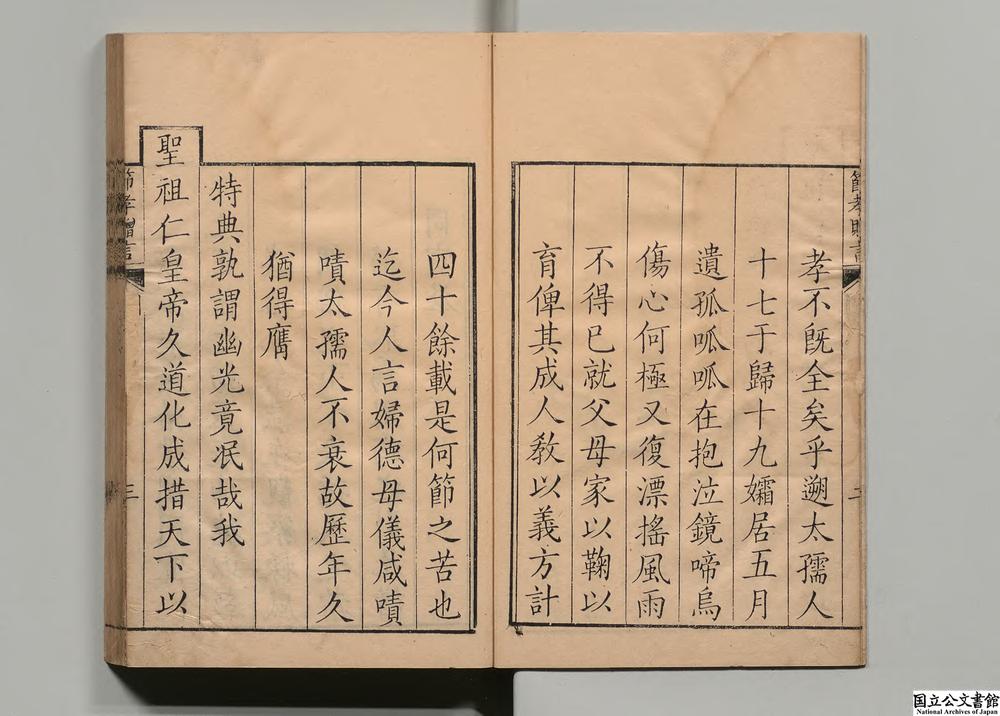 孝不既全矣乎遡太孺人
十七于歸十九孀居五月
遺孤呱呱在抱泣鏡啼烏
傷心何極又復漂搖風雨
不得已就父母家以鞠以
育俾其成人教以義方計
四十餘載是何節之苦也
迄今人言婦德母儀咸嘖
嘖太孺人不衰故歷年久
猶得膺
特典孰謂幽光竟泯哉我
聖祖仁皇帝久道化成措天下以
節孝贈言
三
国立公文書館
National Archives of Japan